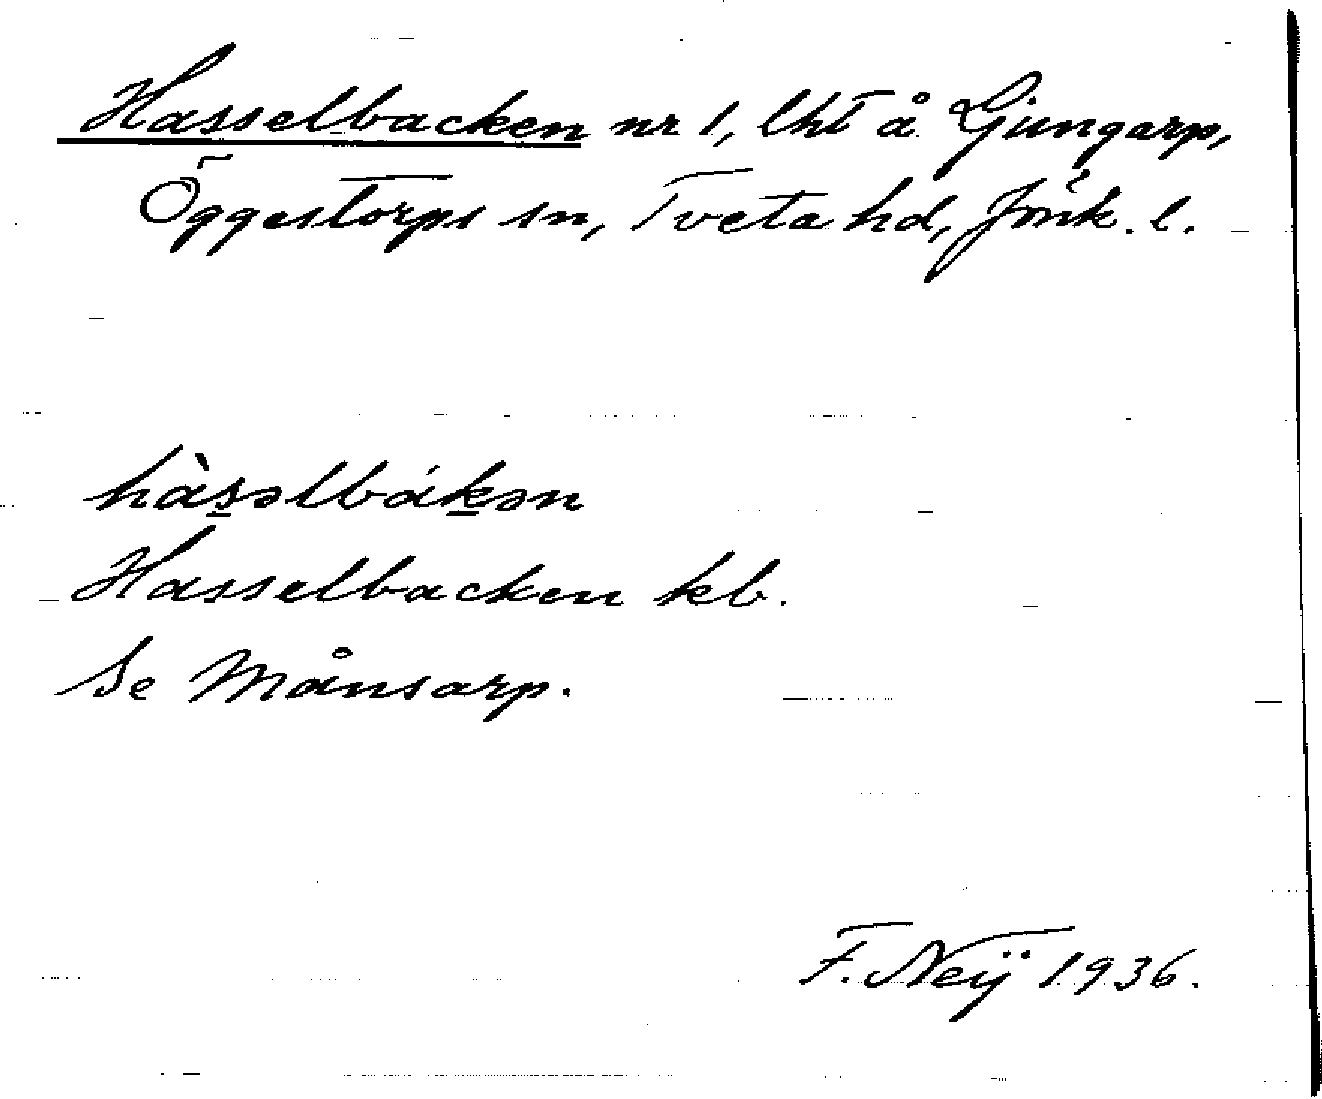 Hasselbacken nr 1, lht å Ljungarp,
Öggestorps sn, Tveta hd, Jönk. l.
hàs̱əlbáḵən
Hasselbacken kb.
Se Månsarp.
F. Neij 1936.